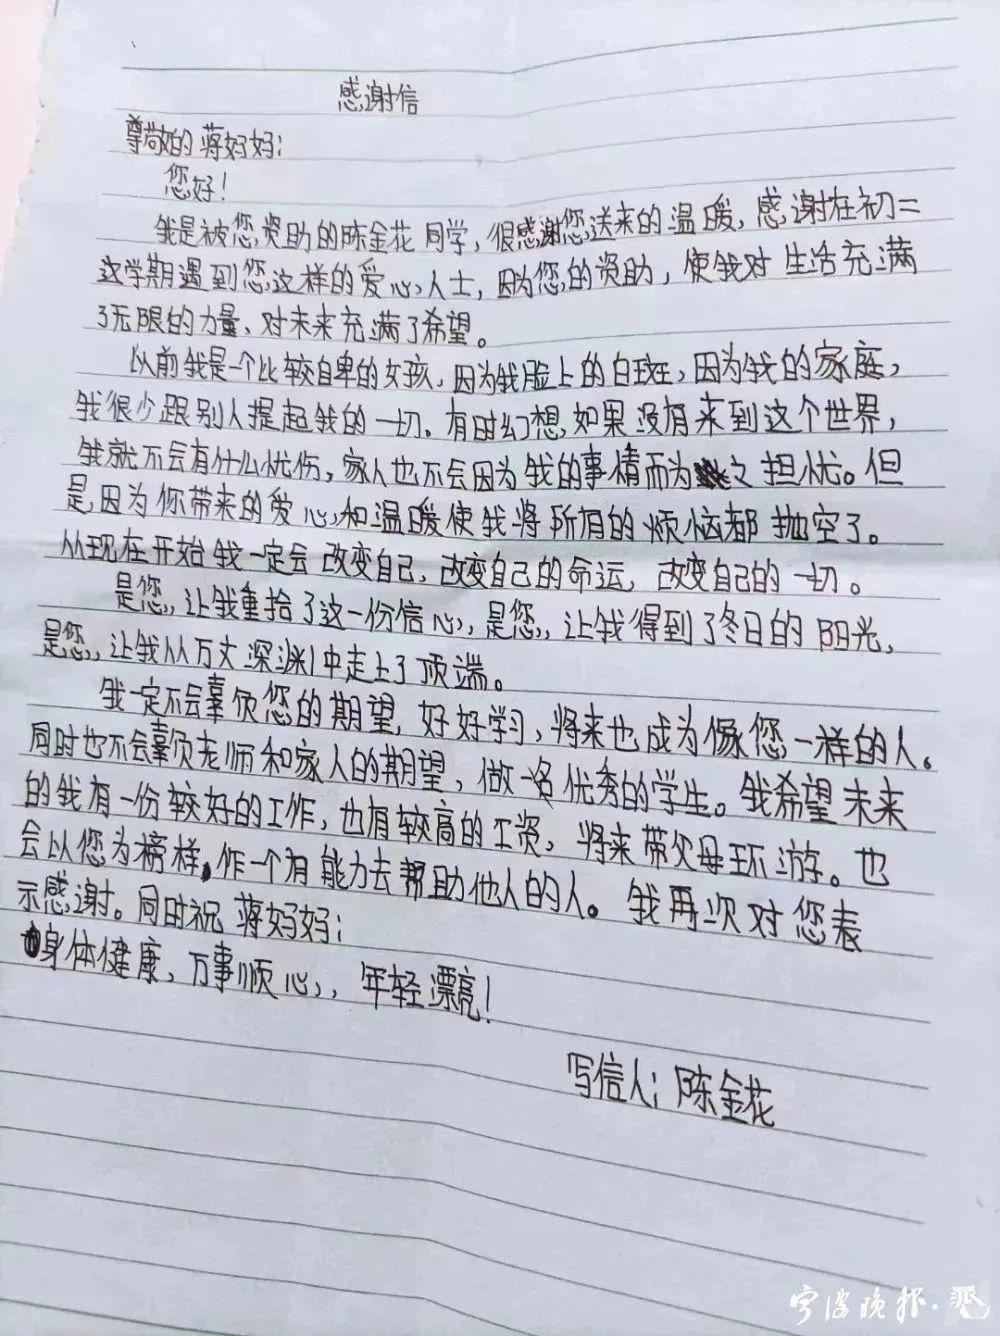 感谢信
尊敬的蒋妈妈:
您好!
我是被您资助的陈金花同学,很感谢您送来的温暖,感谢在初二
这学期遇到您这样的爱心人士,因为您的资助,使我对生活充满
了无限的力量,对未来充满了希望。
以前我是一个比较自卑的女孩,因为我脸上的白斑,因为我的家庭,
我很少跟别人提起我的一切。有时幻想如果没有来到这个世界,
我就不会有什么忧伤,家人也不会因为我的事情而为之担忧。但
是,因为你带来的爱心和温暖使我将所有的烦恼都抛空了。
从现在开始我一定会改变自己,改变自己的命运,改变自己的一切。
是您,让我重拾了这一份信心,是您,让我得到了冬日的阳光,
是您,让我从万丈深渊中走上了顶端。
我一定不会辜负您的期望,好好学习,将来也成为像您一样的人。
同时也不会辜负老师和家人的期望,做一名优秀的学生。我希望未来
的我有一份较好的工作,也有较高的工资,将来带父母环游。也
会以您为榜样,作一个有能力去帮助他人的人。我再次对您表
示感谢。同时祝蒋妈妈:
身体健康,万事顺心,年轻漂亮!
写信人:陈金花
宁波晚报·派